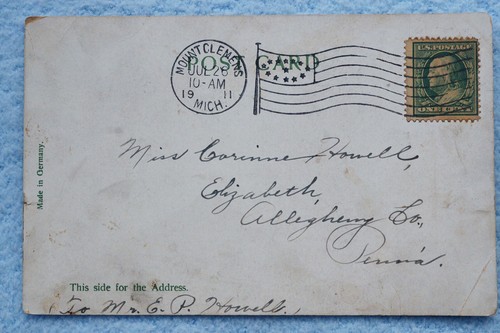 POST CARD
MOUNT CLEMENS
JUL 28
10-AM
19 11
MICH.
U.S. POSTAGE
ONE CENT
Made in Germany.
Miss Corinne Howell,
Elizabeth,
Allegheny Co.,
Penn'a.
This side for the Address.
To Mr. E. P. Howell.